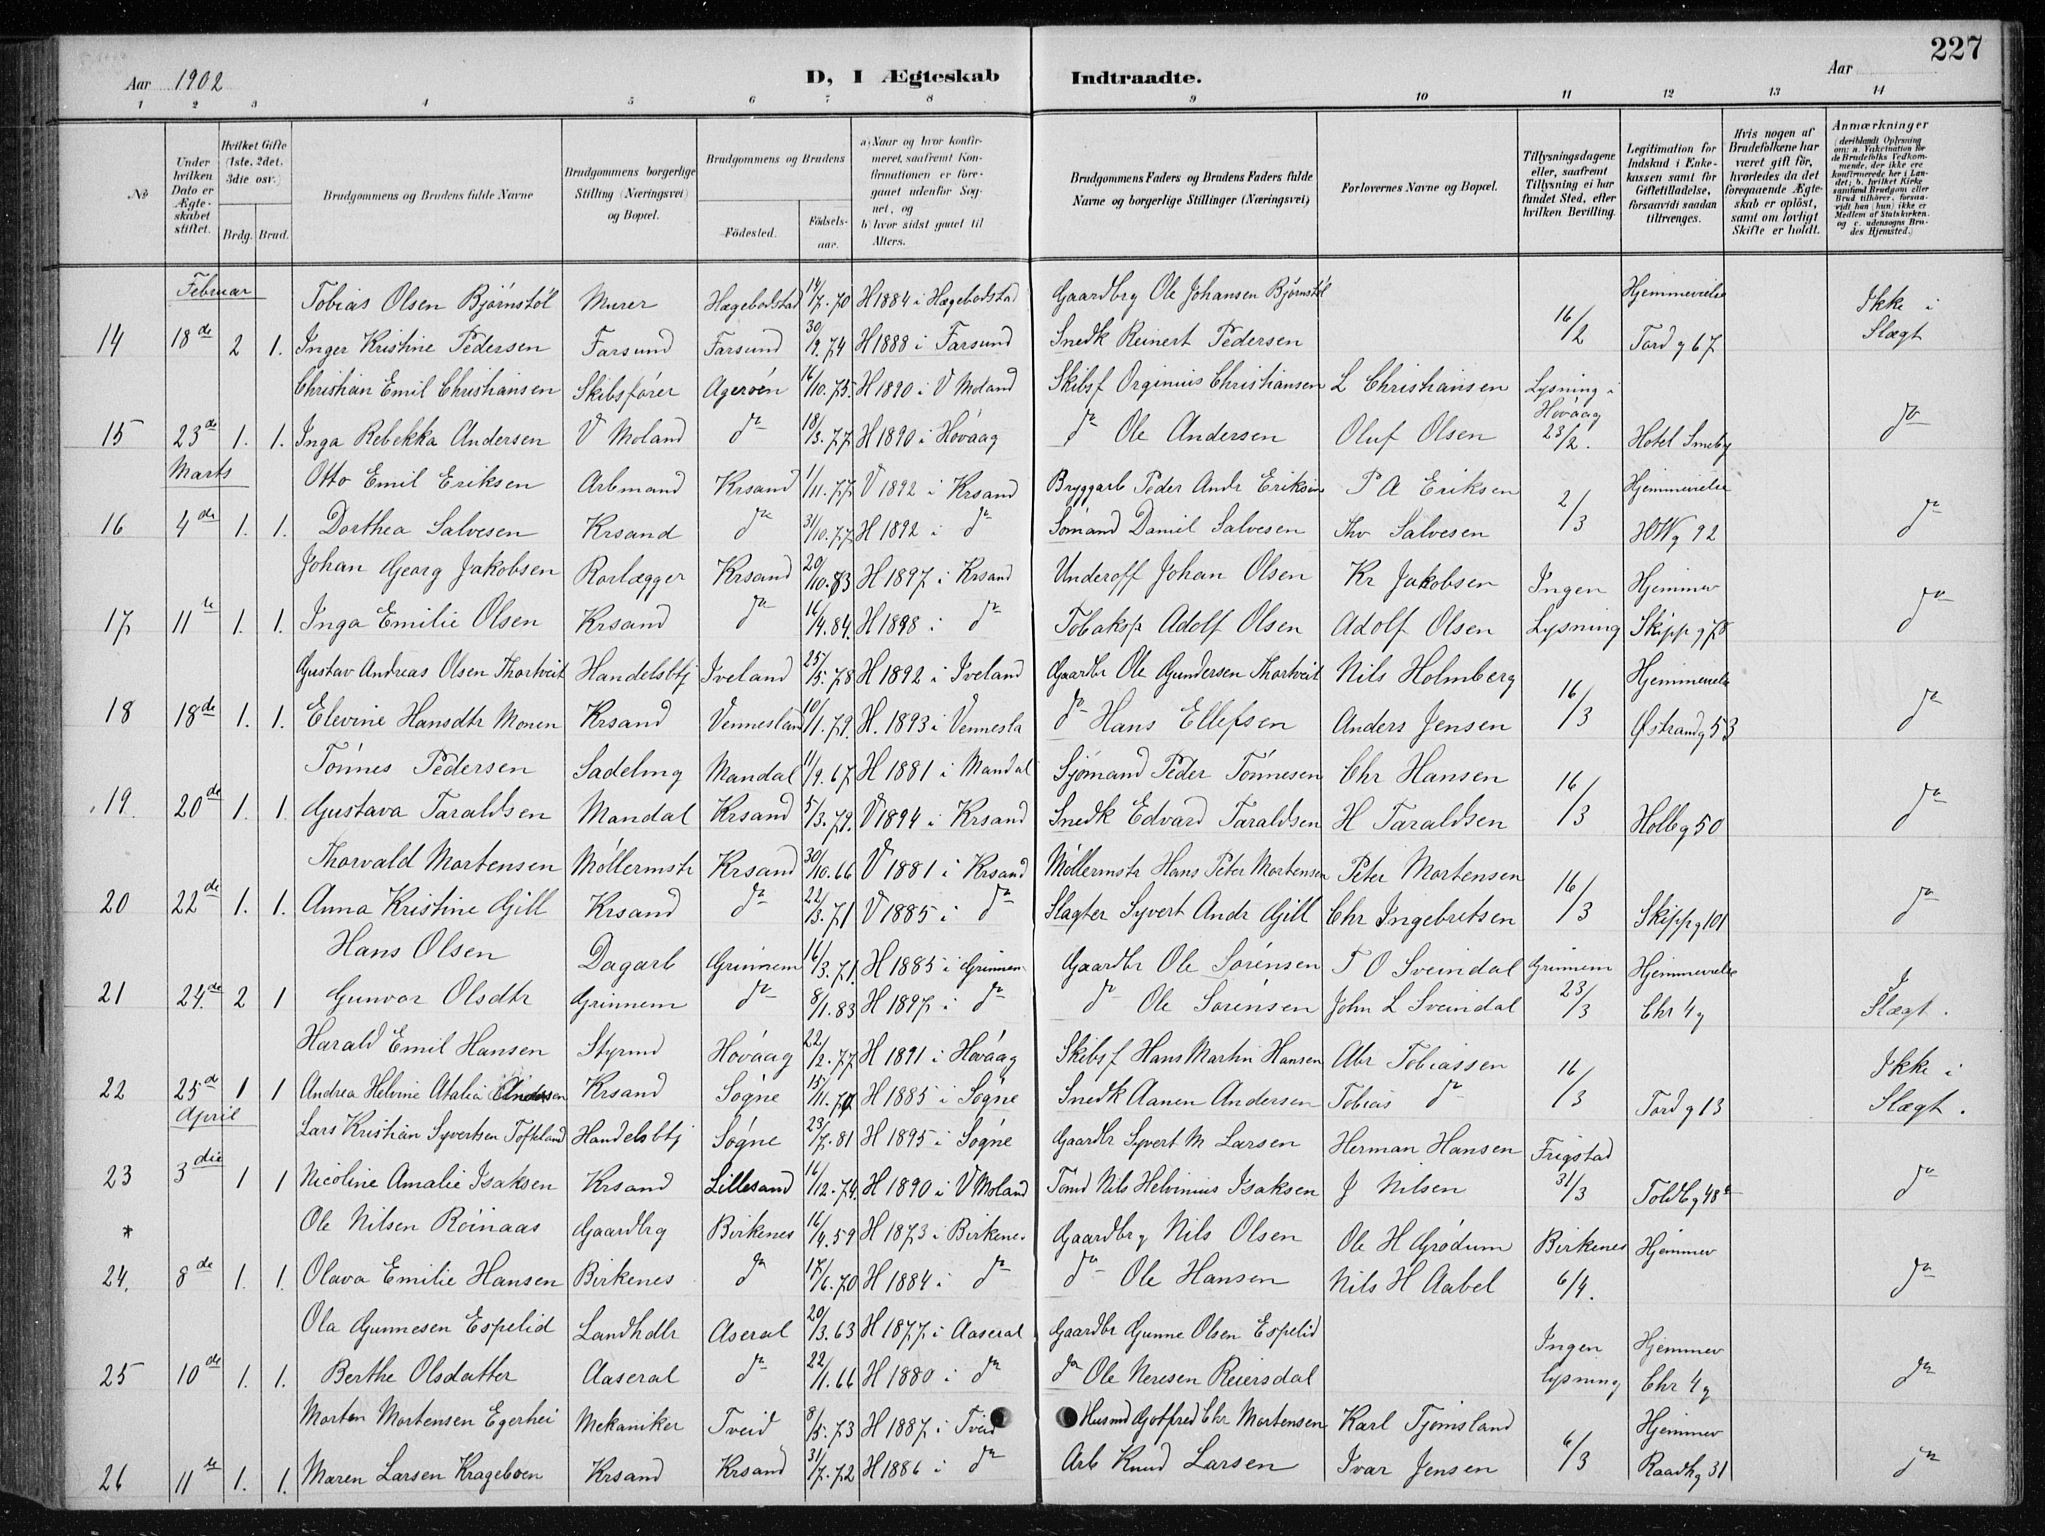 227
Aar 1902 D, I Ægteskab Indtraadte. Aar
1 2 3 4 5 6 7 8 9 10 11 12 13 14
No
Under hvilken Dato er Ægteskabet stiftet.
Hvilket Gifte (1ste, 2det, 3die osv.)
Brdg. Brud.
Brudgommens og Brudens fulde Navne
Brudgommens borgerlige Stilling (Næringsvei) og Bopæl.
Brudgommens og Brudens
Födested. Födselsaar.
a) Naar og hvor konfirmeret, saafremt Konfirmationen er foregaaet udenfor Sognet, og b) hvor sidst gaaet til Alters.
Brudgommens Faders og Brudens Faders fulde Navne og borgerlige Stillinger (Næringsvei)
Forlovernes Navne og Bopæl.
Tillysningsdagene eller, saafremt Tillysning ei har fundet Sted, efter hvilken Bevilling.
Legitimation for Indskud i Enkekassen samt for Giftetilladelse, forsaavidt saadan tiltrænges.
Hvis nogen af Brudefolkene har været gift för, hvorledes da det foregaaende Ægteskab er oplöst, samt om lovligt Skifte er holdt.
Anmærkninger (deriblandt Oplysning om: a. Vakcination for de Brudefolks Vedkommende, der ikke ere konfirmerede her i Landet; b. hvilket Kirkesamfund Brudgom eller Brud tilhörer, forsaavidt han (hun) ikke er Medlem af Statskirken. og c. udensogns Brudes Hjemsted.)
Februar Tobias Olsen Bjørnstøl Murer Hægebodstad 14/7.70 H 1884 i Hægebodstad Gaardbrg Ole Johansen Bjørnstøl Hjemmevielse Ikke i
14 18de 2 1. Inger Kristine Pedersen Farsund Farsund 30/9.74 H 1888 i Farsund Snedk Reinert Pedersen 16/2 Tord g 67 Slægt
Christian Emil Christiansen Skibsfører Agerøen 16/10.75. H 1890 i V Moland Skibsf Orginius Christiansen L Christiansen Lysning i Høvaag
15 23de 1. 1. Inga Rebekka Andersen V Moland do 18/3.77. H 1890 i Høvaag do Ole Andersen Oluf Olsen 23/2. Hotel Smeby do
Marts Otto Emil Eriksen Arbmand Krsand 1/11.77. V 1892 i Krsand Bryggarb Peder Andr Eriksen P A Eriksen Hjemmevielse
16 4de 1. 1. Dorthea Salvesen Krsand do 31/10.77. H 1892 i do Sømand Daniel Salvesen Thv Salvesen 2/3 HWg 92 do
Johan Georg Jakobsen Rørlægger Krsand 20/10.83 H 1897 i Krsand Underoff Johan Olsen Kr Jakobsen Ingen Hjemmev
17 11te 1. 1. Inga Emilie Olsen Krsand do 16/4.84. H 1898 i do Tobaksp Adolf Olsen Adolf Olsen Lysning Skipp g 78 do
Gustav Andreas Olsen Thortveit Handelsbtj Iveland 25/5.78 H 1892 i Iveland Gaardbr Ole Gundersen Thortveit Nils Holmberg Hjemmevielse
18 18de 1. 1. Elevine Hansdtr Moren Krsand Vennesland 10/1.79. H. 1893 i Vennesla do Hans Ellefsen Anders Jensen 16/3 Østrandg 53 do
Tønnes Pedersen Sadelmg Mandal 11/9.67. H 1881 i Mandal Sjømand Peder Tønnesen Chr Hansen
19 20de 1. 1. Gustava Taraldsen Mandal Krsand 5/3.79. V 1894 i Krsand Snedk Edvard Taraldsen H Taraldsen 16/3 Holbg 50 do
Thorvald Mortensen Møllermstr Krsand 30/10.66 V 1881 i Krsand Møllermstr Hans Peter Mortensen Peter Mortensen
20 22de 1. 1. Anna Kristine Gill Krsand do 22/3.71 V 1885 i do Slagter Syvert Andr Gill Chr Ingebretsen 16/3 Skippg 101 do
Hans Olsen Dagarb Grinnem 16/3.71. H 1885 i Grinnem Gaardbr Ole Sørensen T O Sveindal Grinnem Hjemmevielse I
21 24de 2 1 Gunvor Olsdtr Grinnem do 8/1.83 H 1897 i do do Ole Sørensen John L Sveindal 23/3 Chr 4 g Slægt.
Harald Emil Hansen Styrmd Høvaag 22/2.77. H 1891 i Høvaag Skibsf Hans Martin Hansen Abr Tobiassen Ikke i
22 25de 1 1 Andrea Helvine Atalia Andersen Krsand Søgne 15/11.70 H 1885 i Søgne Snedk Aanen Andersen Tobias do 16/3 Tord g 13 Slægt.
April Lars Kristian Syvertsen Tofteland Handelsbtj Søgne 23/7.81 H 1895 i Søgne Gaardbr Syvert M Larsen Herman Hansen Frigstad
23 3die 1 1 Nicoline Amalie Isaksen Krsand Lillesand 16/12.74. H 1890 i V Moland Tømd Nils Helvinius Isaksen J Nilsen 31/3 Toldbg 48 do
* Ole Nilsen Røinaas Gaardbrg Birkenes 16/4.59 H 1873 i Birkenes Gaardbrg Nils Olsen Ole H Grødum Birkenes Hjemmev
24. 8de 1. 1. Olava Emilie Hansen Birkenes do 17/6.70 H 1884 i do do Ole Hansen Nils H Aabel 6/4. do
Ola Gunnesen Espelid Landhdlr Aseral 20/3.63 H 1877 i Aaseral Gaardbr Gunne Olsen Espelid Ingen Hjemmev
25 10de 1. 1. Berthe Olsdatter Aaseral do 22/1.66 H 1880 i do do Ole Neresen Reiersdal lysning Chr 4 g do
Morten Mortensen Egerhei Mekaniker Tveid 8/5.73 H 1887 i Tveid Husmd Gotfred Chr Mortensen Karl Tjømsland Hjemmev
26 11te 1. 1. Maren Larsen Krageboen Krsand Krsand 31/7.72 H 1886 i do Arb Knud Larsen Ivar Jensen 6/3 Raadhg 31 do